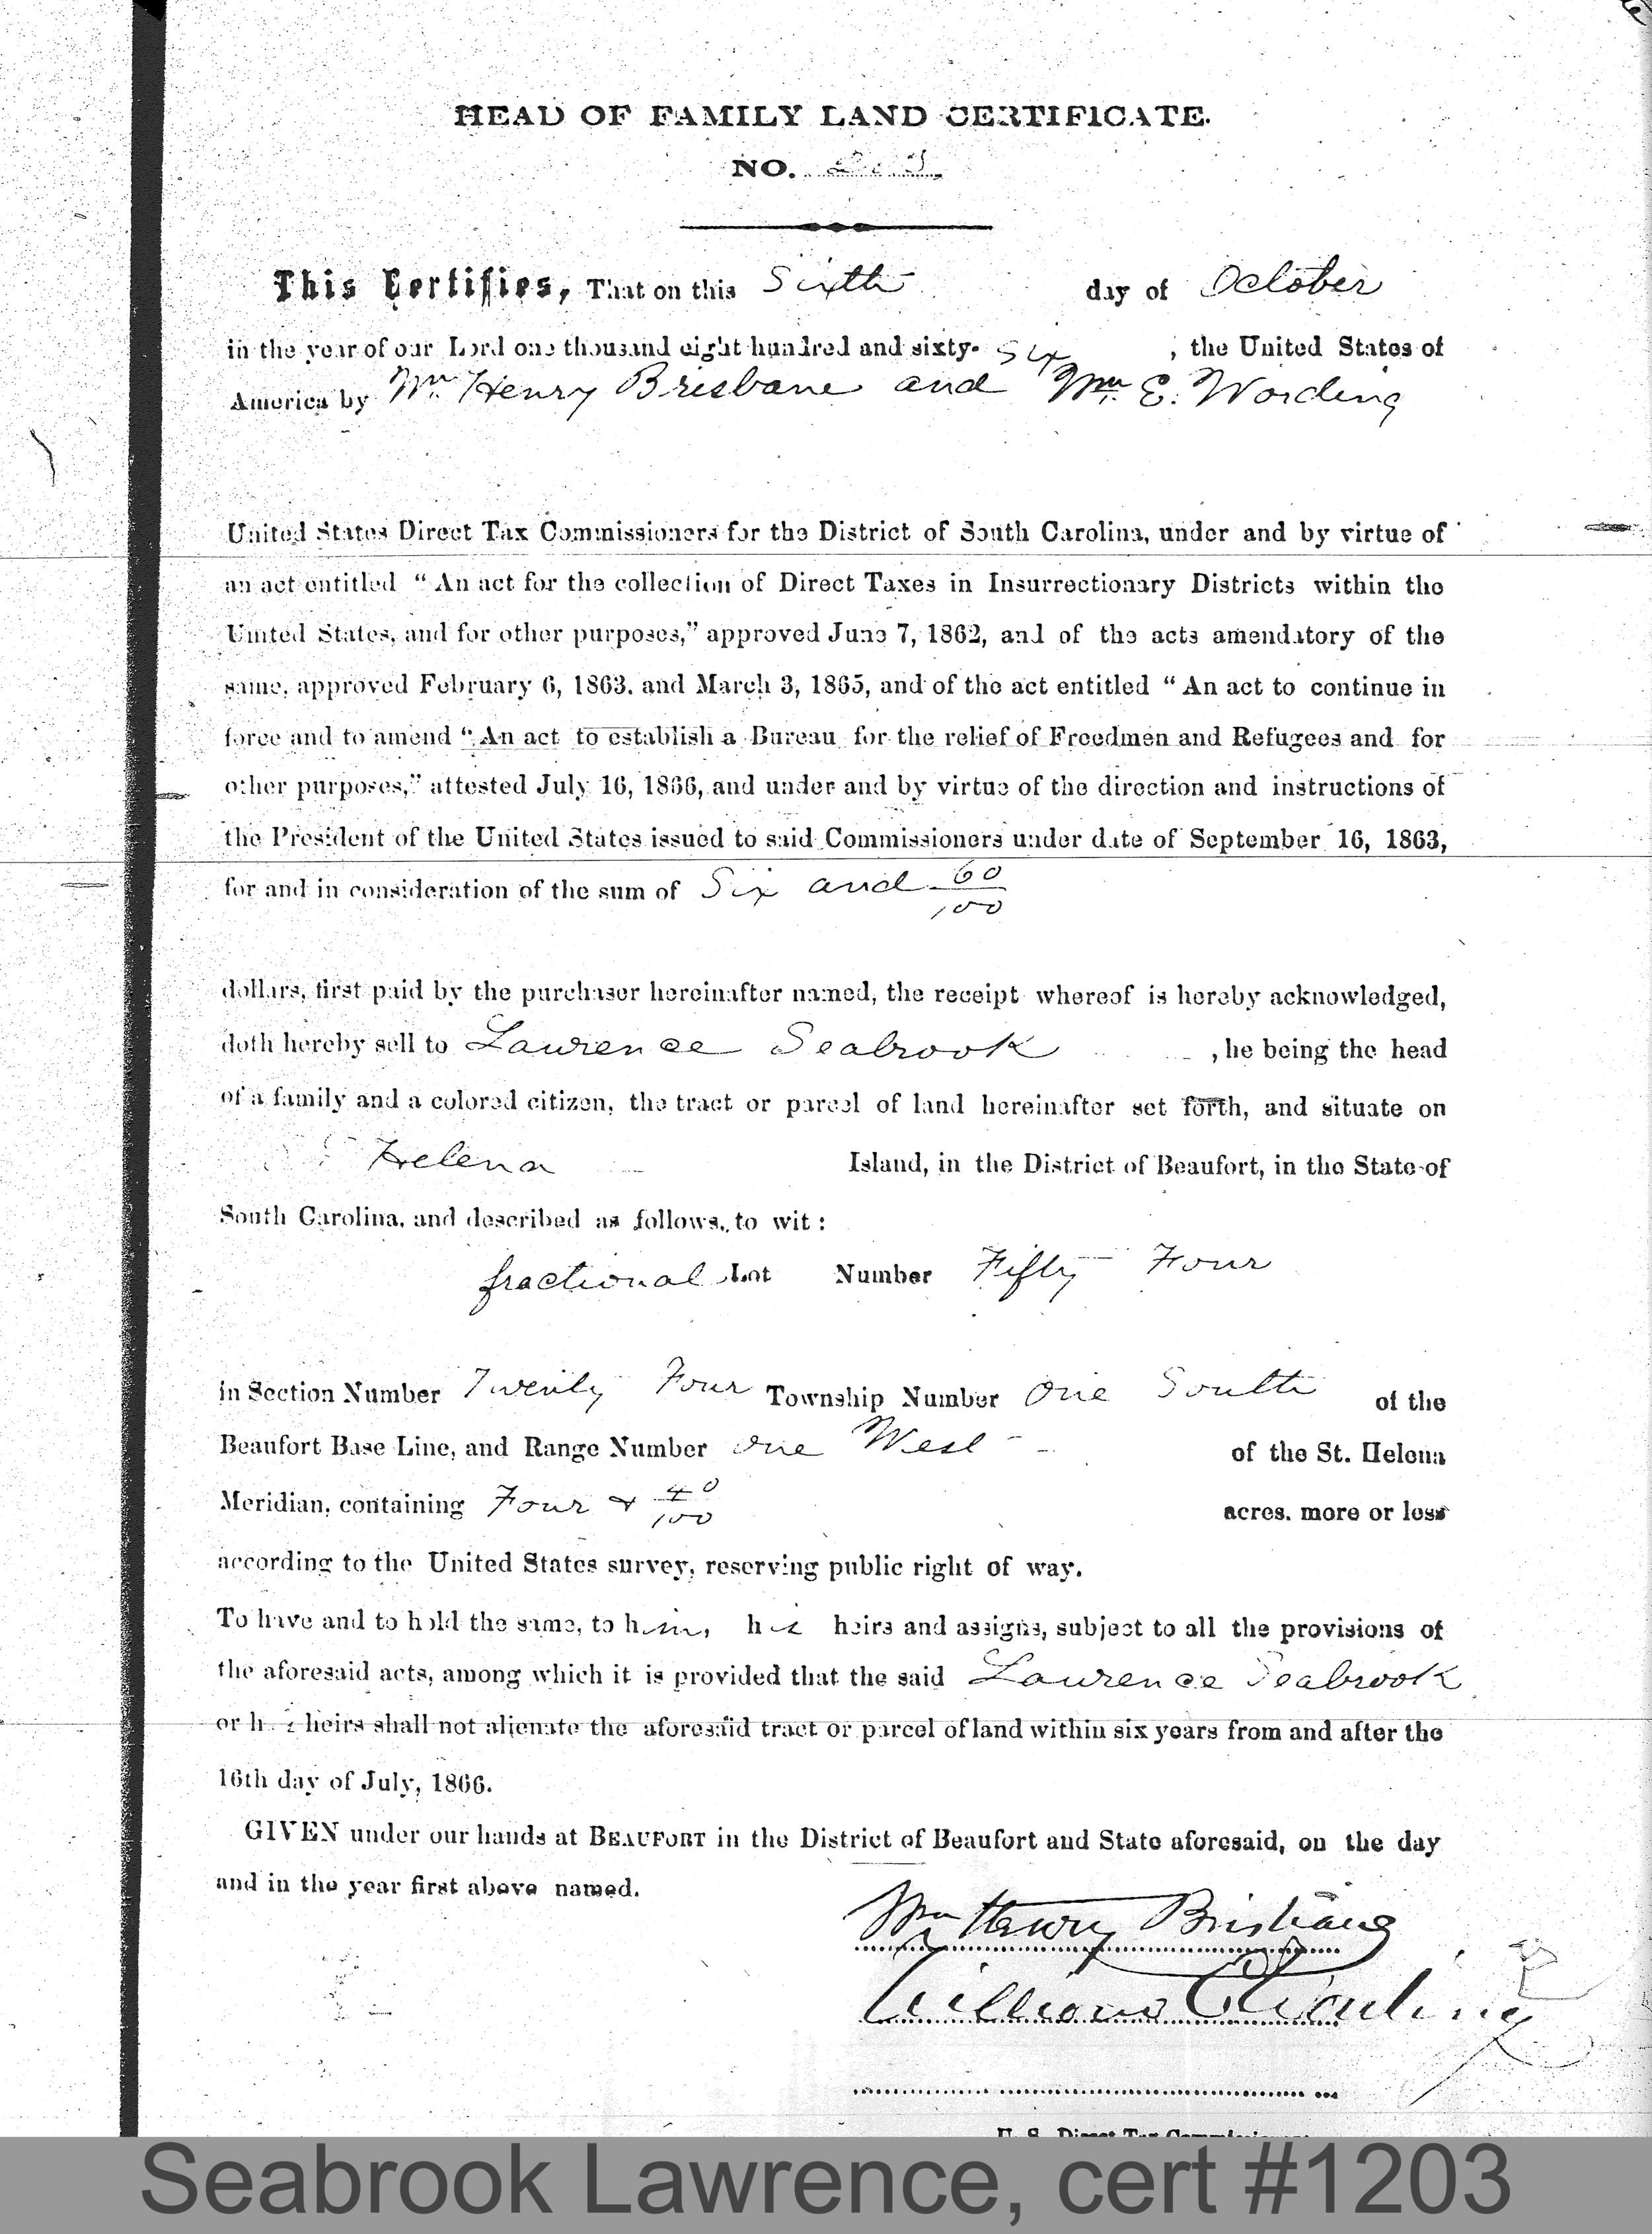 HEAD OF FAMILY LAND CERTIFICATE.
NO.
This Certifies, That on this Sixth day of October
in the year of our Lord one thousand eight hundred and sixty- Six, the United States of
America by Wm. Henry Brisbane and Wm. E. Wording
United States Direct Tax Commissioners for the District of South Carolina, under and by virtue of
an act entitled “An act for the collection of Direct Taxes in Insurrectionary Districts within the
United States, and for other purposes,” approved June 7, 1862, and of the acts amendatory of the
same, approved February 6, 1863, and March 3, 1865, and of the act entitled “An act to continue in
force and to amend “An act to establish a Bureau for the relief of Freedmen and Refugees and for
other purposes,” attested July 16, 1866, and under and by virtue of the direction and instructions of
the President of the United States issued to said Commissioners under date of September 16, 1863,
for and in consideration of the sum of Six and 60/100
dollars, first paid by the purchaser hereinafter named, the receipt whereof is hereby acknowledged,
doth hereby sell to Lawrence Seabrook, he being the head
of a family and a colored citizen, the tract or parcel of land hereinafter set forth, and situate on
Helena Island, in the District of Beaufort, in the State of
South Carolina, and described as follows, to wit:
fractional Lot Number Fifty Four
in Section Number Twenty Four Township Number One South of the
Beaufort Base Line, and Range Number One West of the St. Helena
Meridian, containing Four & 40/100 acres, more or less
according to the United States survey, reserving public right of way.
To have and to hold the same, to him, his heirs and assigns, subject to all the provisions of
the aforesaid acts, among which it is provided that the said Lawrence Seabrook
or his heirs shall not alienate the aforesaid tract or parcel of land within six years from and after the
16th day of July, 1866.
GIVEN under our hands at BEAUFORT in the District of Beaufort and State aforesaid, on the day
and in the year first above named.
Wm Henry Brisbane
William E Wording
U. S. Direct Tax Commissioners
Seabrook Lawrence, cert #1203